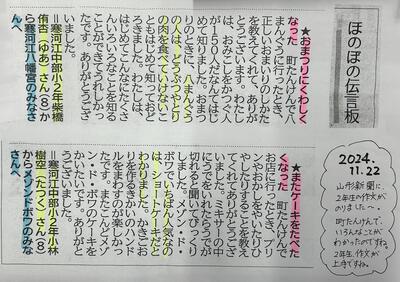 ほのぼの伝言板
★おまつりにくわしく
なった　町たんけんで八
まんぐうに行ったとき、
正しいおまいりのしかた
を教えてくれ、ありが
とうございました。わたし
は、おみこしをかつぐ人
が150人だなんてはじ
めて知りました。おまつ
りのときに、八まんぐう
の人は、どうぶつやとり
の肉を食べてはいけないこ
ともはじめて知っておど
ろきました。わたしは、
はじめてこんなにたくさ
んいろいろなことを知る
ことができてうれしかっ
たです。ありがとうござ
いました。
＝寒河江中部小2年柴橋
侑杏（ゆあ）さん（8）か
ら寒河江八幡宮のみなさ
んへ
★またケーキをたべた
くなった　町たんけんで
お店に行ったとき、プリ
ンやおかしをやいたりひ
やしたりすることを教え
てくれてありがとうござ
いました。ミキサーの中
に
切れると聞いてびっくり
しました。メゾンド・
ボワでいちばん人気なの
は、ショートケーキだと
わかりました。かきごお
りを作るきかいのハンド
ルをまわすのが楽しかっ
たです。またこんどメゾ
ン・ド・ボワのケーキを
かいたいです。ありがと
うございました。
＝寒河江中部小2年小林
樹空（たつく）さん（8）
からメゾンドボワのみな
さんへ
2024.
11.22
山形新聞に、
2年生の作文が
のりました〜。
町たんけんで、
いろんなことが
わかったのですね。
2年生、作文が
上手ですね。